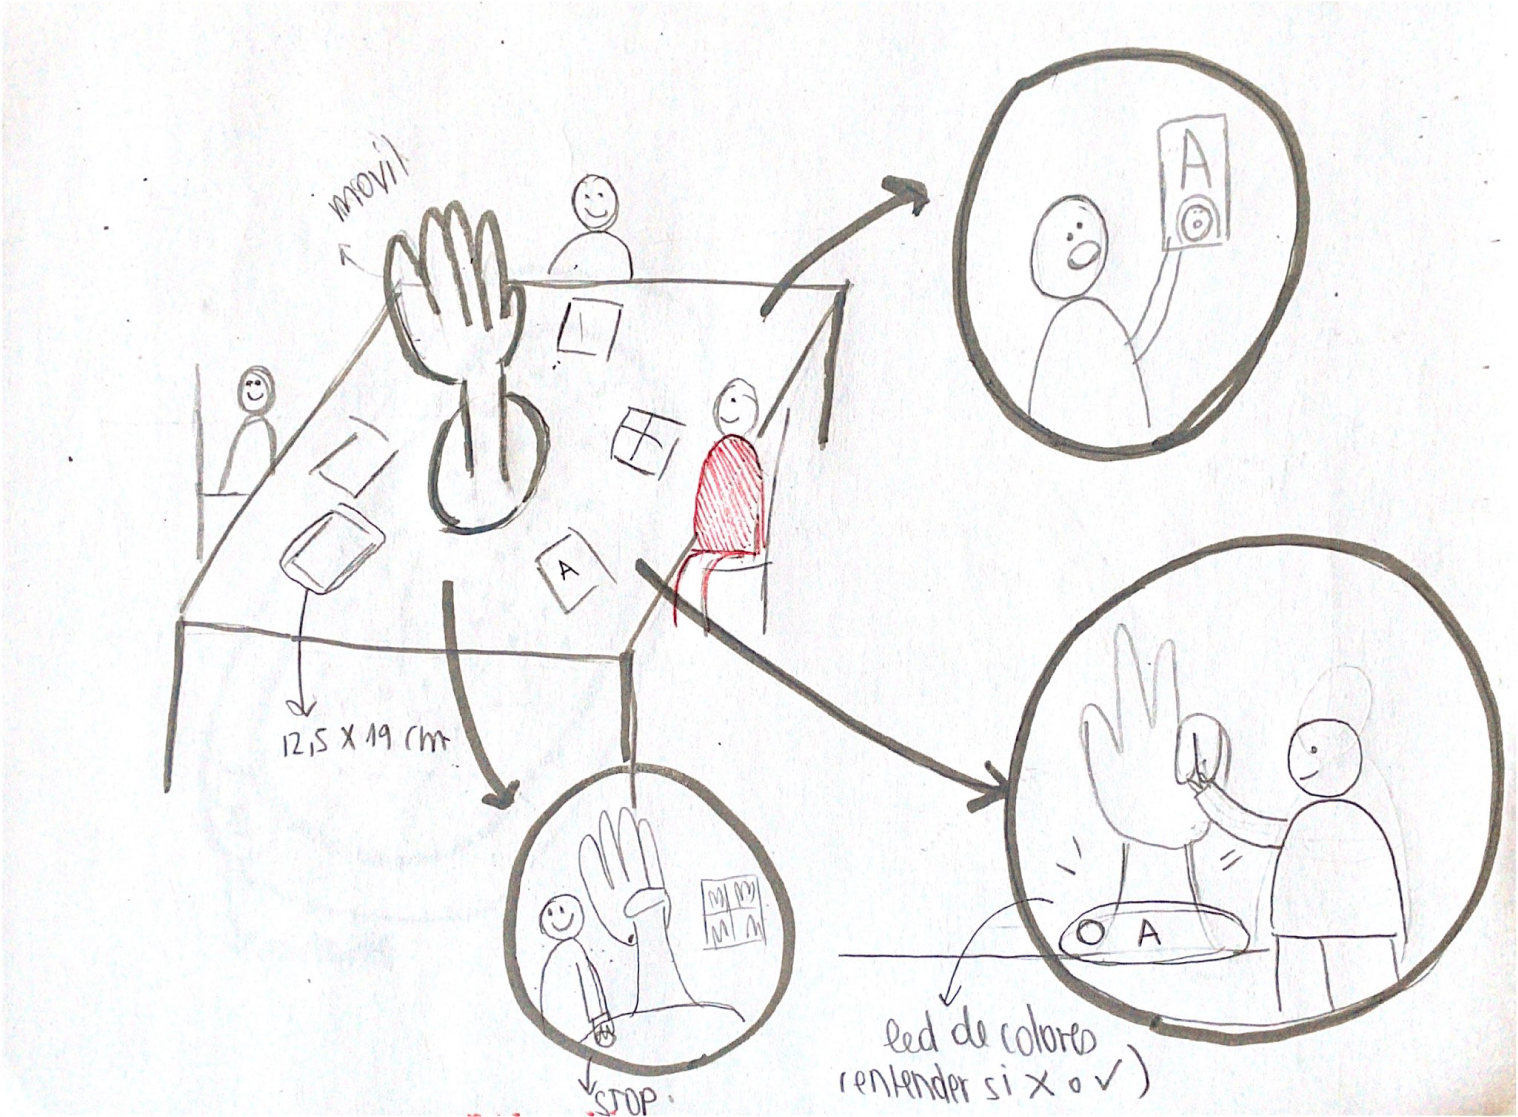 movil
A
A
12,5 X 19 cm
A
STOP.
led de colores
(entender si X o ✓)